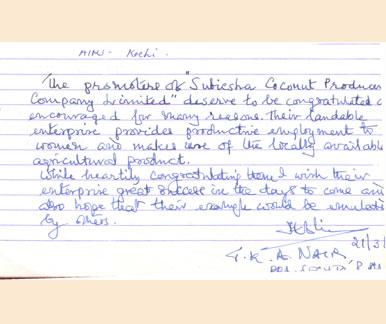 AIMS - Kochi.
The promoters of "Subicsha Coconut Producer
Company Limited" deserve to be congratulated
encouraged for many reasons. Their laudable
enterprise provides productive employment to
women and makes use of the locally available
agricultural product.
While heartily congratulating them I wish their
enterprise great success in the days to come and
also hope that their example would be emulated
by others.
21/3/
T. K. A. NAIR